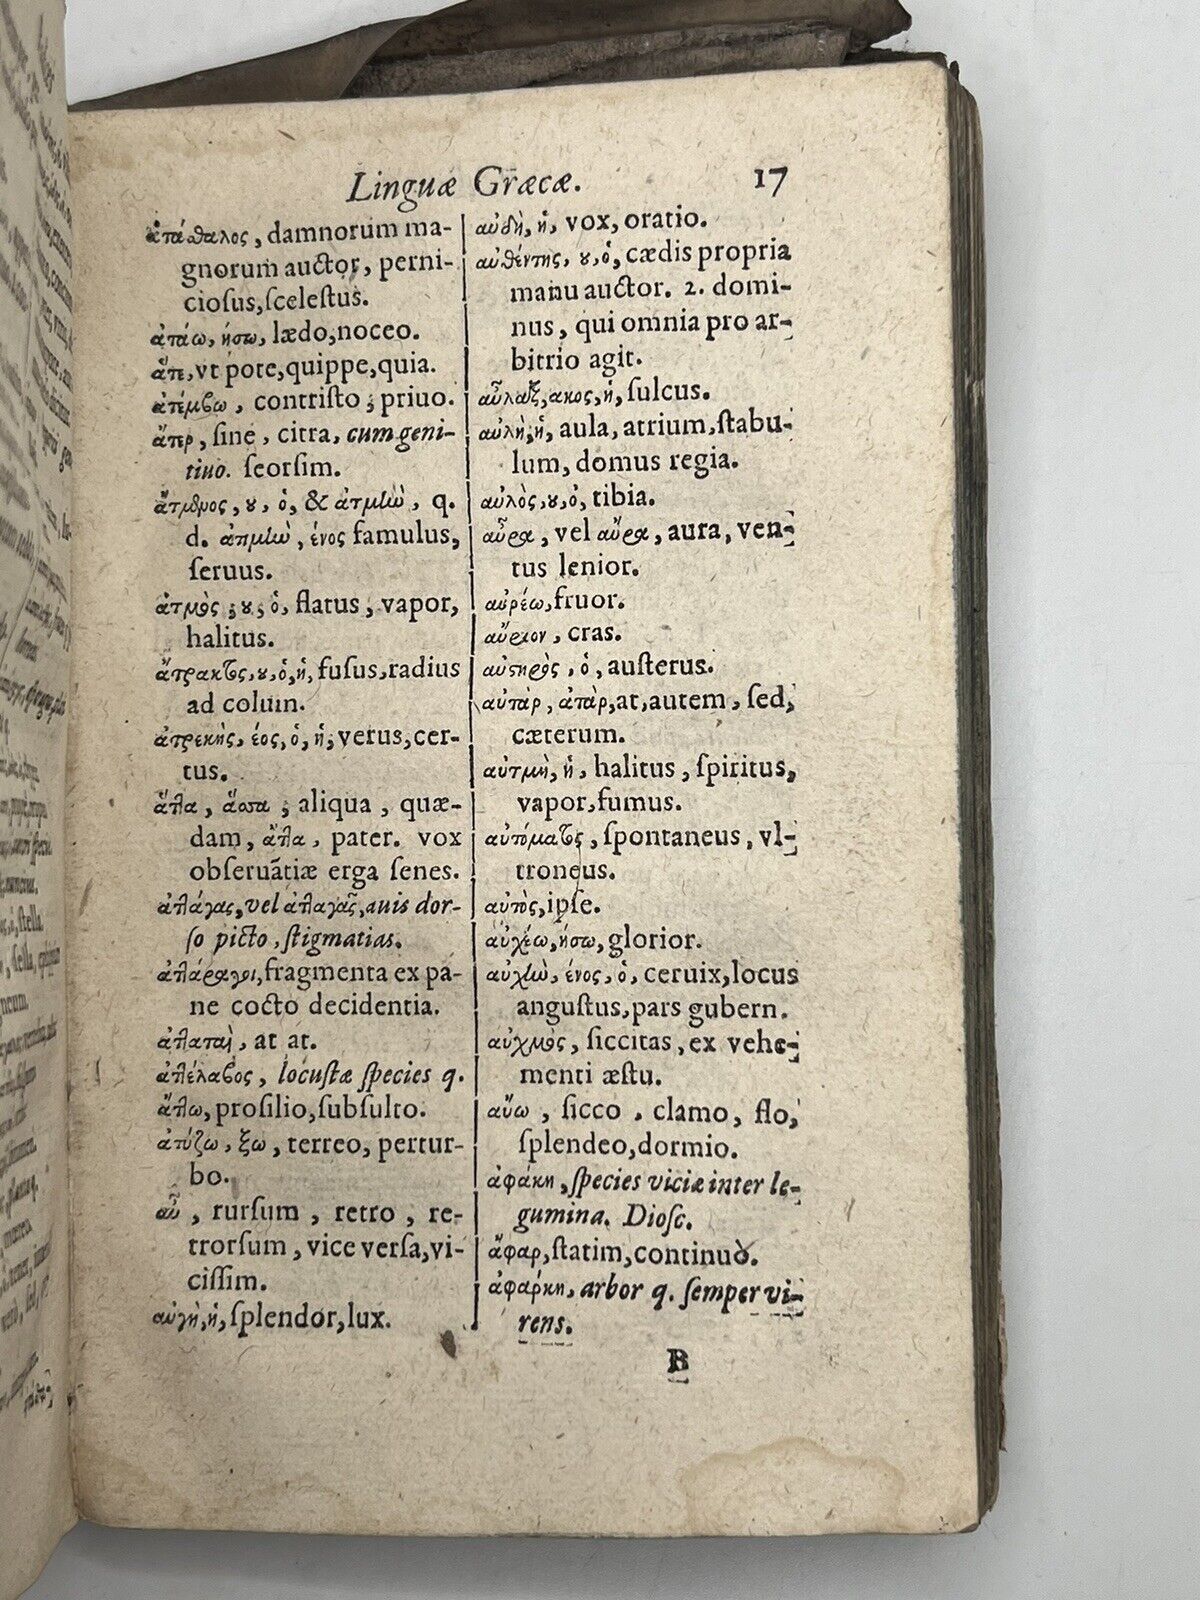 Linguæ Græcæ. 17
ἀτάσθαλος, damnorum ma-
gnorum auctor, perni-
ciosus, scelestus.
ἀτάω, ήσω, lædo, noceo.
ἅτε, vt pote, quippe, quia.
ἀτέμβω, contristo; priuo.
ἄτερ, sine, citra, cum geni-
tiuo. seorsim.
ἄτμενος, ου, ὁ, & ἀτμὴν, q.
d. ἀτμὴν, ένος famulus,
seruus.
ἀτμὸς, ου, ὁ, flatus, vapor,
halitus.
ἄτρακτος, ου, ὁ, ἡ, fusus, radius
ad colum.
ἀτρεκὴς, έος, ὁ, ἡ, verus, cer-
tus.
ἄττα, ἅσσα, aliqua, quæ-
dam, ἄττα, pater. vox
obseruātiæ erga senes.
ἀτταγας, vel ἀτταγᾶς, auis dor-
so picto, stigmatias.
ἀττάραγοι, fragmenta ex pa-
ne cocto decidentia.
ἀτταταὶ, at at.
ἀττέλαβος, locustæ species q.
ἄττω, prosilio, subsulto.
ἀτύζω, ξω, terreo, pertur-
bo.
αὖ, rursum, retro, re-
trorsum, vice versa, vi-
cissim.
αὐγὴ, ἡ, splendor, lux.
αὐδὴ, ἡ, vox, oratio.
αὐθέντης, ου, ὁ, cædis propria
manu auctor. 2. domi-
nus, qui omnia pro ar-
bitrio agit.
αὖλαξ, ακος, ἡ, sulcus.
αὐλὴ, ἡ, aula, atrium, stabu-
lum, domus regia.
αὐλὸς, ου, ὁ, tibia.
αὖρα, vel αὔρα, aura, ven-
tus lenior.
αὐρέω, fruor.
αὔριον, cras.
αὐστηρὸς, ὁ, austerus.
αὐτὰρ, ἀτὰρ, at, autem, sed,
cæterum.
αὐτμὴ, ἡ, halitus, spiritus,
vapor, fumus.
αὐτόματος, spontaneus, vl-
troneus.
αὐτὸς, ipse.
αὐχέω, ήσω, glorior.
αὐχὴν, ένος, ὁ, ceruix, locus
angustus, pars gubern.
αὐχμὸς, siccitas, ex vehe-
menti æstu.
αὔω, sicco, clamo, flo,
splendeo, dormio.
ἀφάκη, species viciæ inter le-
gumina. Diosc.
ἄφαρ, statim, continuò.
ἀφάρκη, arbor q. semper vi-
rens.
B